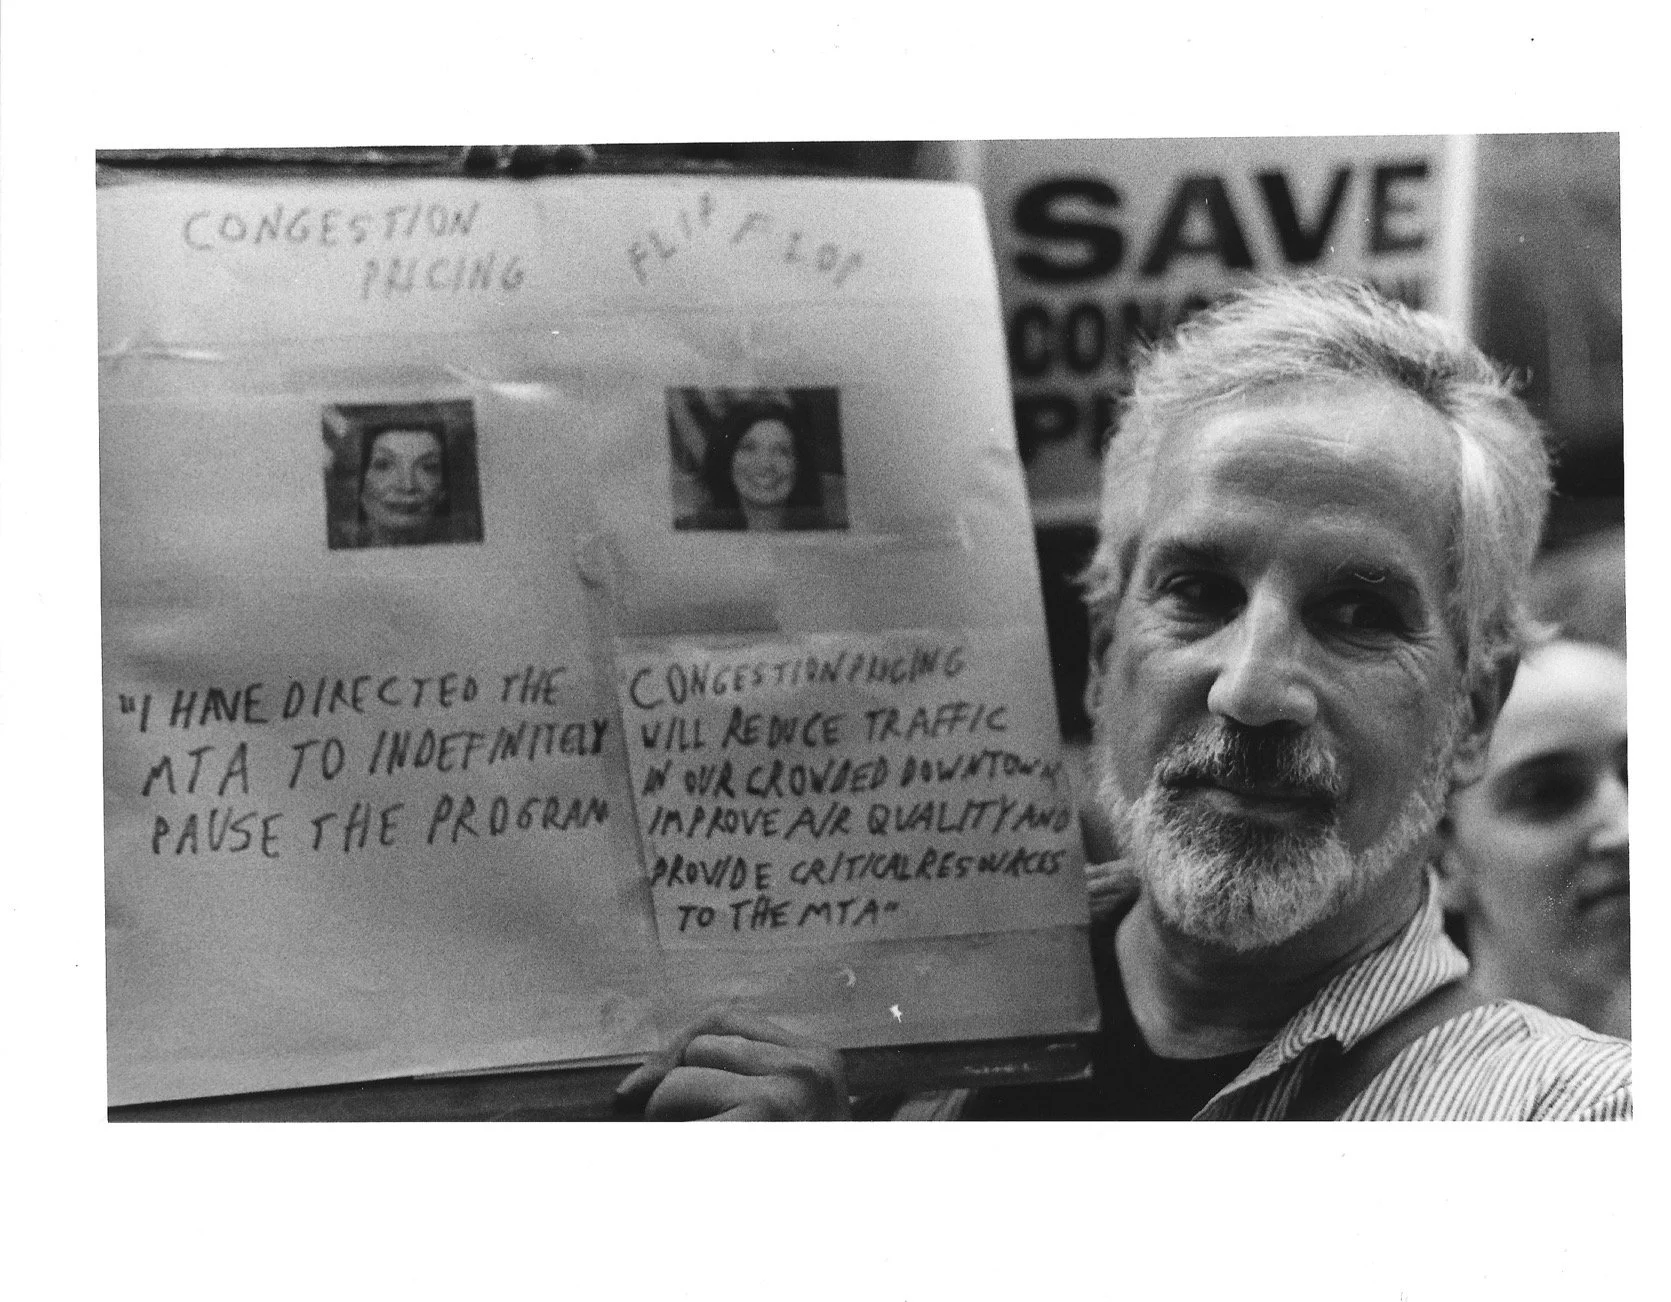 CONGESTION
PRICING
FLIP FLOP
"I HAVE DIRECTED THE
MTA TO INDEFINITELY
PAUSE THE PROGRAM
"CONGESTION PRICING
WILL REDUCE TRAFFIC
IN OUR CROWDED DOWNTOWN
IMPROVE AIR QUALITY AND
PROVIDE CRITICAL RESOURCES
TO THE MTA"
SAVE